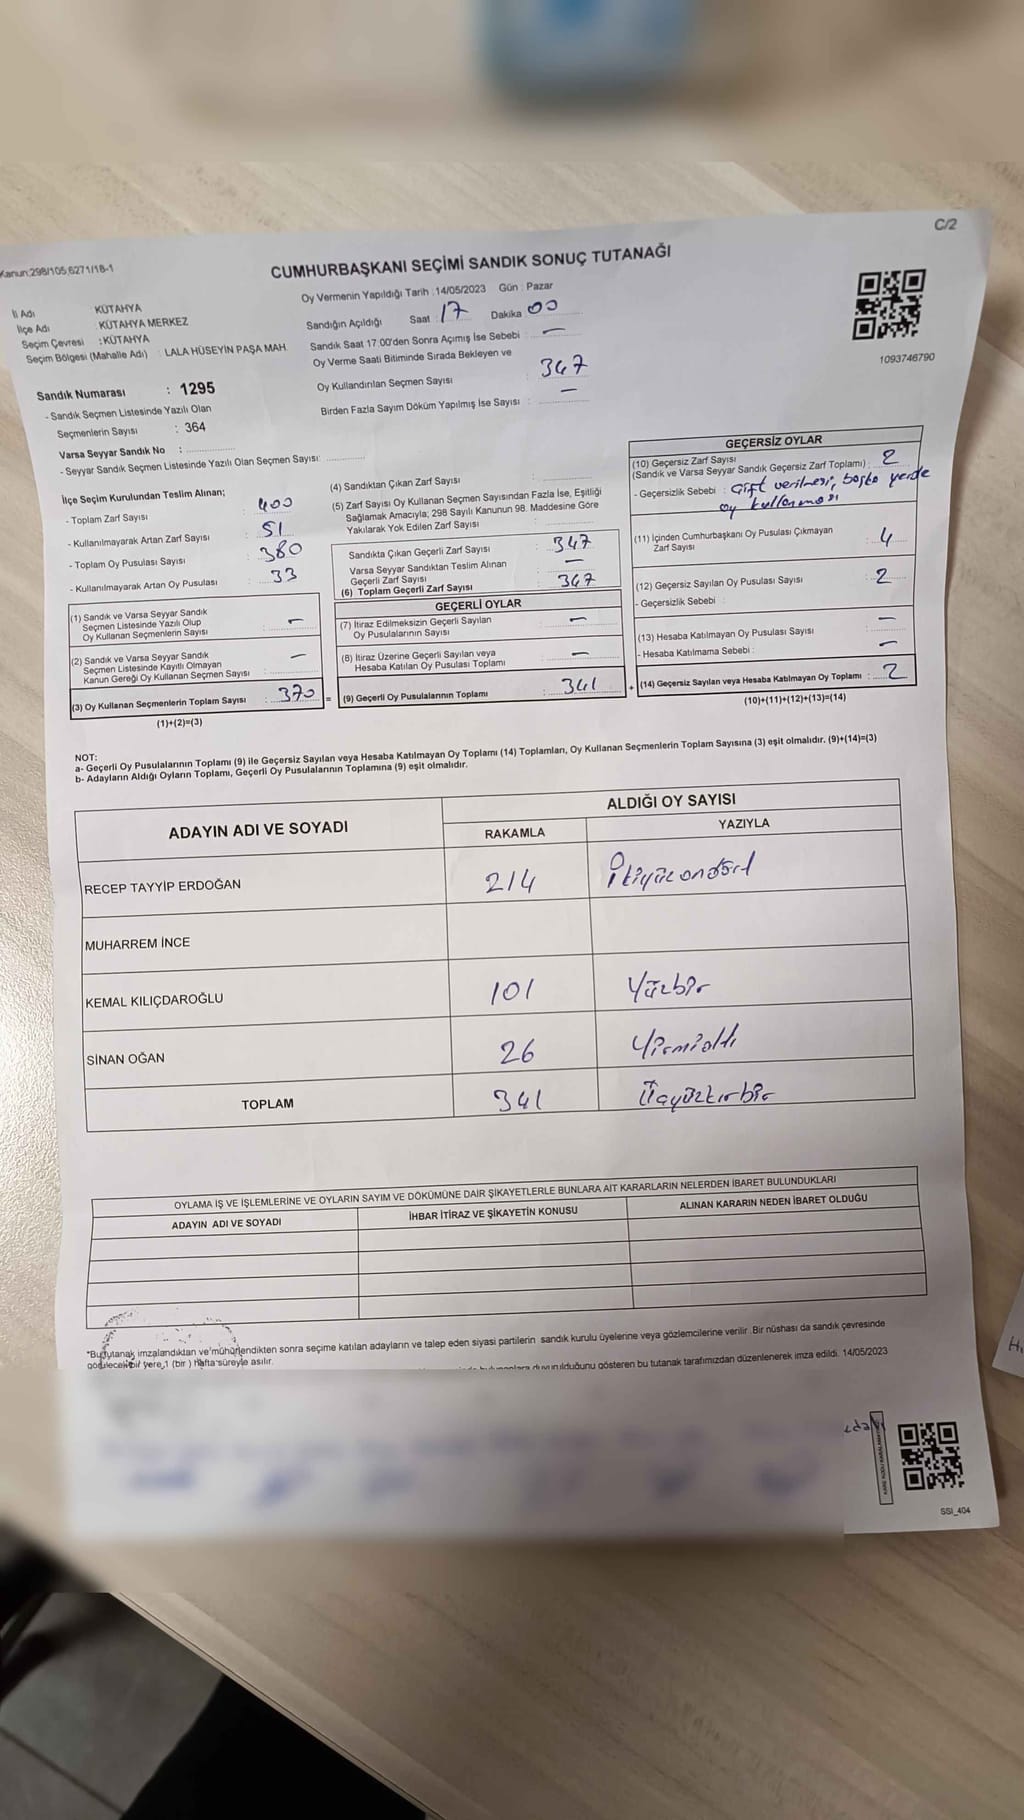 C/2
Kanun:298/105;6271/18-1
CUMHURBAŞKANI SEÇİMİ SANDIK SONUÇ TUTANAĞI
İl Adı KÜTAHYA
İlçe Adı : KÜTAHYA MERKEZ
Seçim Çevresi : KÜTAHYA
Seçim Bölgesi (Mahalle Adı) : LALA HÜSEYİN PAŞA MAH.
Oy Vermenin Yapıldığı Tarih : 14/05/2023 Gün : Pazar
Sandığın Açıldığı Saat : 17 Dakika 00
Sandık Saat 17:00'den Sonra Açımış İse Sebebi : —
Oy Verme Saati Bitiminde Sırada Bekleyen ve
Oy Kullandırılan Seçmen Sayısı : 347
Birden Fazla Sayım Döküm Yapılmış İse Sayısı : —
1093746790
Sandık Numarası : 1295
- Sandık Seçmen Listesinde Yazılı Olan
Seçmenlerin Sayısı : 364
Varsa Seyyar Sandık No :
- Seyyar Sandık Seçmen Listesinde Yazılı Olan Seçmen Sayısı:
İlçe Seçim Kurulundan Teslim Alınan;
- Toplam Zarf Sayısı : 400
- Kullanılmayarak Artan Zarf Sayısı : 51
- Toplam Oy Pusulası Sayısı : 380
- Kullanılmayarak Artan Oy Pusulası : 33
(1) Sandık ve Varsa Seyyar Sandık
Seçmen Listesinde Yazılı Olup
Oy Kullanan Seçmenlerin Sayısı : —
(2) Sandık ve Varsa Seyyar Sandık
Seçmen Listesinde Kayıtlı Olmayan
Kanun Gereği Oy Kullanan Seçmen Sayısı : —
(3) Oy Kullanan Seçmenlerin Toplam Sayısı : 370 =
(1)+(2)=(3)
(4) Sandıktan Çıkan Zarf Sayısı :
(5) Zarf Sayısı Oy Kullanan Seçmen Sayısından Fazla İse, Eşitliği
Sağlamak Amacıyla; 298 Sayılı Kanunun 98. Maddesine Göre
Yakılarak Yok Edilen Zarf Sayısı :
Sandıkta Çıkan Geçerli Zarf Sayısı : 347
Varsa Seyyar Sandıktan Teslim Alınan
Geçerli Zarf Sayısı : —
(6) Toplam Geçerli Zarf Sayısı : 347
GEÇERLİ OYLAR
(7) İtiraz Edilmeksizin Geçerli Sayılan
Oy Pusulalarının Sayısı : —
(8) İtiraz Üzerine Geçerli Sayılan veya
Hesaba Katılan Oy Pusulası Toplamı : —
(9) Geçerli Oy Pusulalarının Toplamı : 341 +
GEÇERSİZ OYLAR
(10) Geçersiz Zarf Sayısı
(Sandık ve Varsa Seyyar Sandık Geçersiz Zarf Toplamı) : 2
- Geçersizlik Sebebi : Çift verilmesi, başka yerde
oy kullanması
(11) İçinden Cumhurbaşkanı Oy Pusulası Çıkmayan
Zarf Sayısı : 4
(12) Geçersiz Sayılan Oy Pusulası Sayısı : 2
- Geçersizlik Sebebi :
(13) Hesaba Katılmayan Oy Pusulası Sayısı : —
- Hesaba Katılmama Sebebi : —
(14) Geçersiz Sayılan veya Hesaba Katılmayan Oy Toplamı : 2
(10)+(11)+(12)+(13)=(14)
NOT:
a- Geçerli Oy Pusulalarının Toplamı (9) ile Geçersiz Sayılan veya Hesaba Katılmayan Oy Toplamı (14) Toplamları, Oy Kullanan Seçmenlerin Toplam Sayısına (3) eşit olmalıdır. (9)+(14)=(3)
b- Adayların Aldığı Oyların Toplamı, Geçerli Oy Pusulalarının Toplamına (9) eşit olmalıdır.
ADAYIN ADI VE SOYADI ALDIĞI OY SAYISI
RAKAMLA YAZIYLA
RECEP TAYYİP ERDOĞAN 214 İkiyüzondört
MUHARREM İNCE
KEMAL KILIÇDAROĞLU 101 Yüzbir
SİNAN OĞAN 26 Yirmialtı
TOPLAM 341 Üçyüzkırbir
OYLAMA İŞ VE İŞLEMLERİNE VE OYLARIN SAYIM VE DÖKÜMÜNE DAİR ŞİKAYETLERLE BUNLARA AİT KARARLARIN NELERDEN İBARET BULUNDUKLARI
ADAYIN ADI VE SOYADI İHBAR İTİRAZ VE ŞİKAYETİN KONUSU ALINAN KARARIN NEDEN İBARET OLDUĞU
*Bu tutanak imzalandıktan ve mühürlendikten sonra seçime katılan adayların ve talep eden siyasi partilerin sandık kurulu üyelerine veya gözlemcilerine verilir. Bir nüshası da sandık çevresinde
görülecek bir yere 1 (bir) hafta süreyle asılır.
duyurulduğunu gösteren bu tutanak tarafımızdan düzenlenerek imza edildi. 14/05/2023
SSI_404